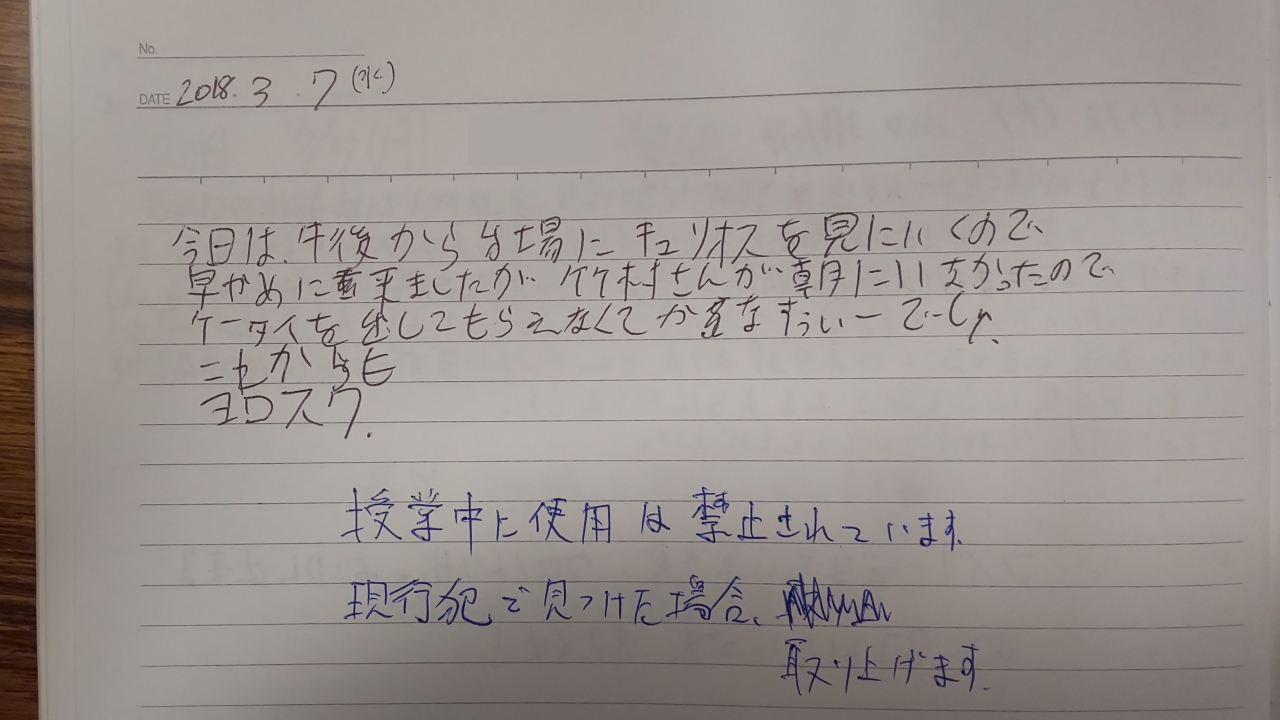 No.
DATE 2018. 3 . 7 (水)
今日は、午後からお台場にキュリオスを見にいくので
早やめに来ましたが ケケ村さんが朝にいなかったので
ケータイを出してもらえなくて
ニセからも
ヨロスク.
授業中に使用は禁止されています.
現行犯で見つけた場合、
取り上げます.